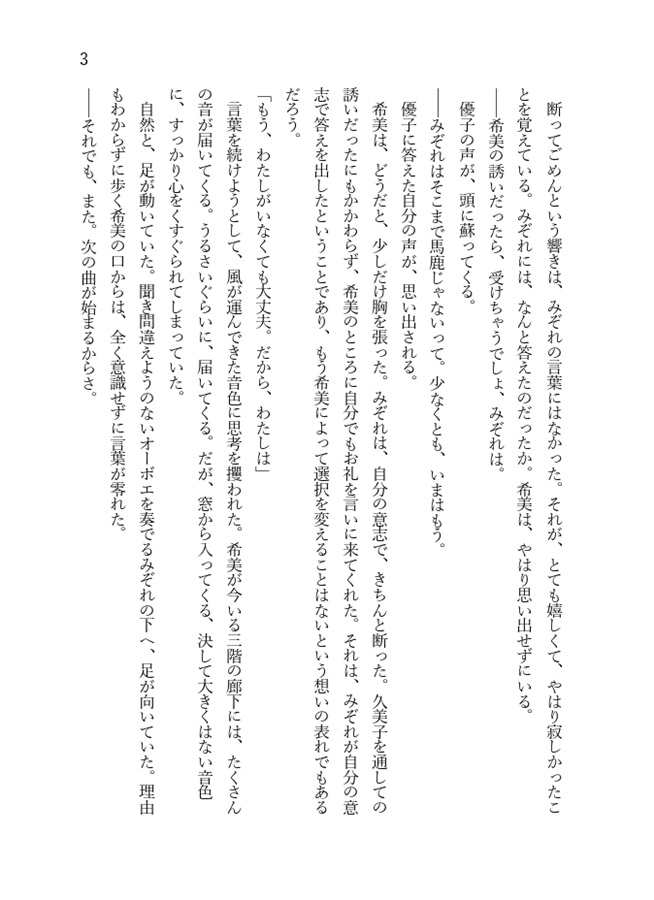 3
断ってごめんという響きは、みぞれの言葉にはなかった。それが、とても嬉しくて、やはり寂しかったこ
とを覚えている。みぞれには、なんと答えたのだったか。希美は、やはり思い出せずにいる。
――希美の誘いだったら、受けちゃうでしょ、みぞれは。
優子の声が、頭に蘇ってくる。
――みぞれはそこまで馬鹿じゃないって。少なくとも、いまはもう。
優子に答えた自分の声が、思い出される。
希美は、どうだと、少しだけ胸を張った。みぞれは、自分の意志で、きちんと断った。久美子を通しての
誘いだったにもかかわらず、希美のところに自分でもお礼を言いに来てくれた。それは、みぞれが自分の意
志で答えを出したということであり、もう希美によって選択を変えることはないという想いの表れでもある
だろう。
「もう、わたしがいなくても大丈夫。だから、わたしは」
言葉を続けようとして、風が運んできた音色に思考を攫われた。希美が今いる三階の廊下には、たくさん
の音が届いてくる。うるさいぐらいに、届いてくる。だが、窓から入ってくる、決して大きくはない音色
に、すっかり心をくすぐられてしまっていた。
自然と、足が動いていた。聞き間違えようのないオーボエを奏でるみぞれの下へ、足が向いていた。理由
もわからずに歩く希美の口からは、全く意識せずに言葉が零れた。
――それでも、また。次の曲が始まるからさ。